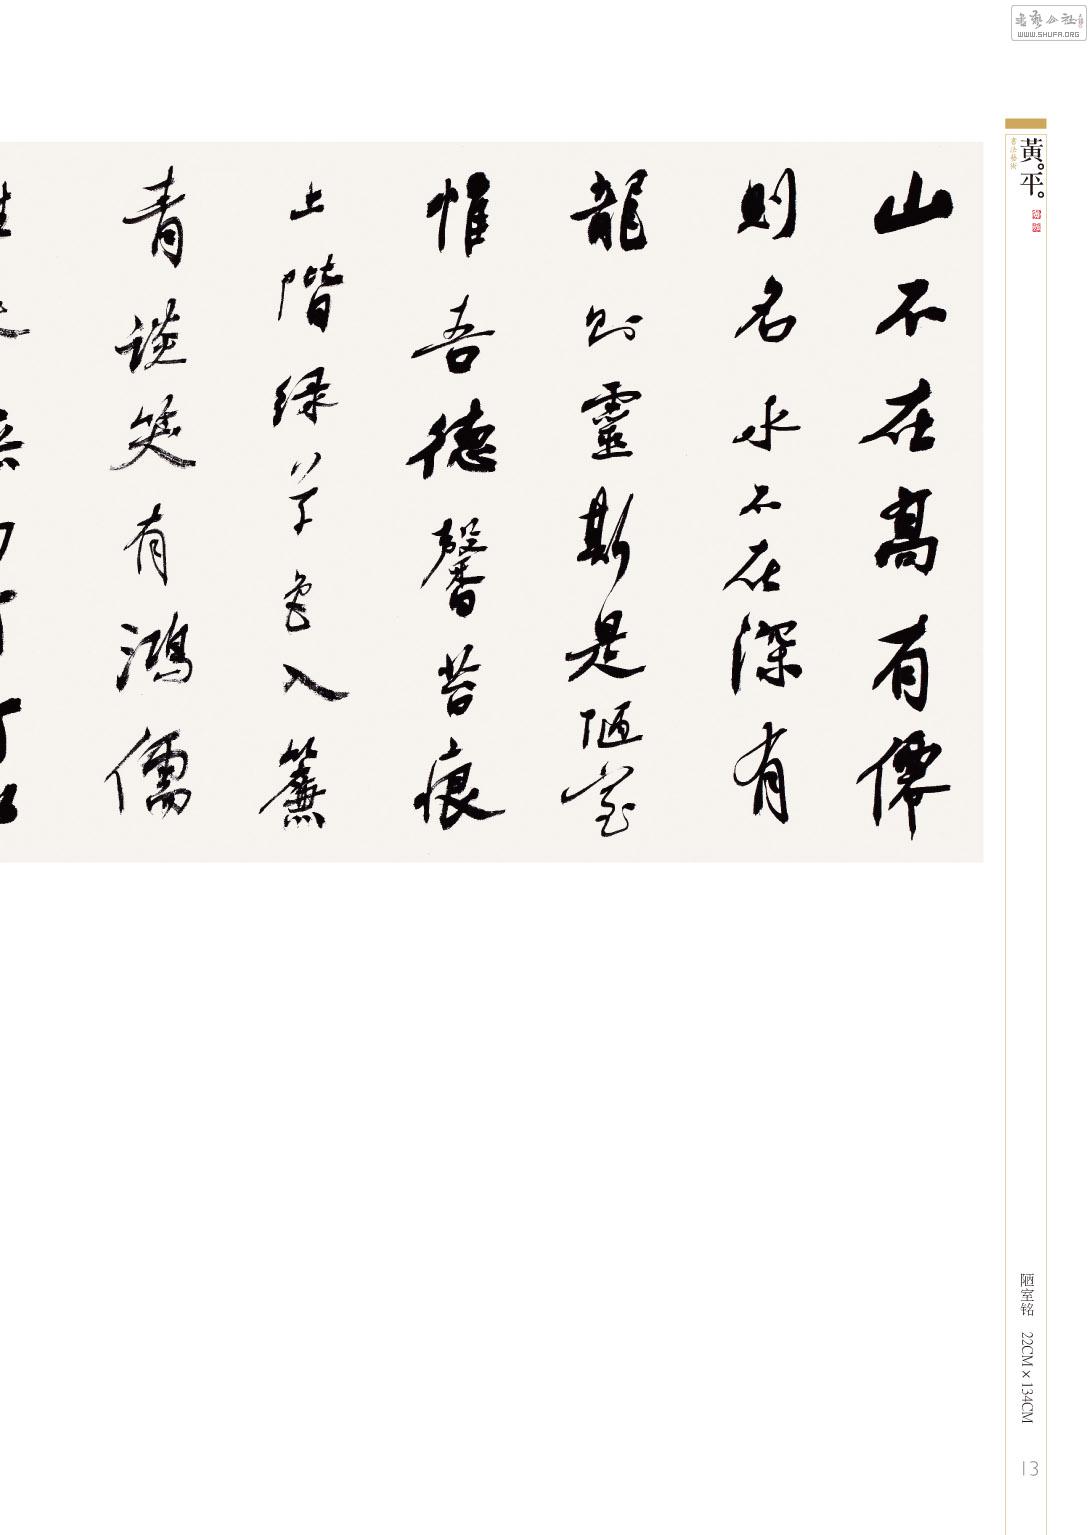 書藝公社
WWW.SHUFA.ORG
黃。平。
書法藝術
山不在髙有僊
則名水不在深有
龍則靈斯是陋室
惟吾德馨苔痕
上階緑草色入簾
青談笑有鴻儒
陋室铭 22CM×134CM
13